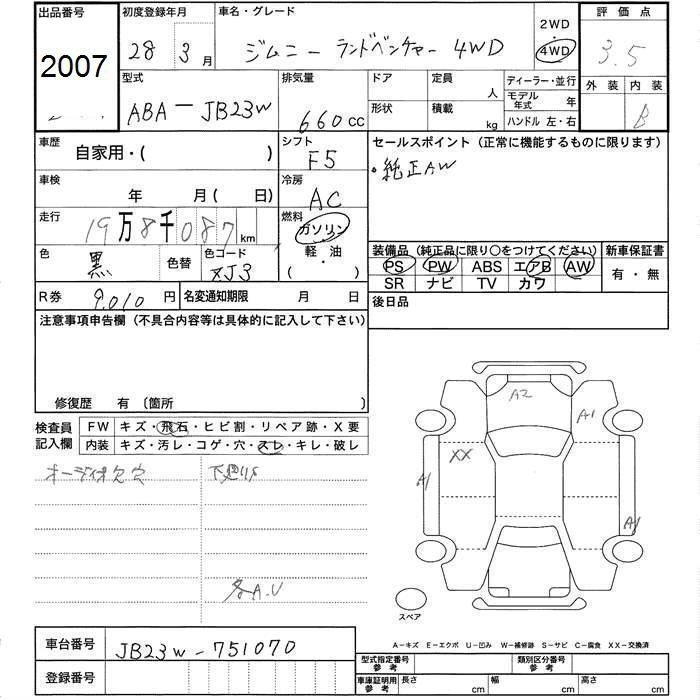 出品番号 初度登録年月 車名・グレード 2WD 評価点
2007 28年 3月 ジムニー ランドベンチャー 4WD 4WD 3.5
型式 排気量 ドア 定員 人 ディーラー・並行 外装 内装
ABA-JB23W 660cc 形状 積載 kg モデル年式 年 B
ハンドル 左・右
車歴 自家用・( ) シフト F5 セールスポイント (正常に機能するものに限ります)
・純正AW
車検 年 月( 日) 冷房 AC
走行 19万8千087km 燃料 ガソリン
軽・油
( )
色 黒 色替 色コード ZJ3 装備品 (純正品に限り○をつけてください) 新車保証書
PS PW ABS エアB AW 有・無
SR ナビ TV カワ
R券 9,010円 名変通知期限 月 日 後日品
注意事項申告欄 (不具合内容等は具体的に記入して下さい)
修復歴 有 〔箇所
検査員 FW キズ・飛石・ヒビ割・リペア跡・X要
記入欄 内装 キズ・汚レ・コゲ・穴・スレ・キレ・破レ
オーディオ欠穴 下廻りS
各A.U
A2
A1
XX
A1
A1
スペア
A-キズ E-エクボ U-凹み W-補修跡 S-サビ C-腐食 XX-交換済
車台番号 JB23W-751070
登録番号
型式指定番号 参考 類別区分番号 参考
車庫証明用 参考 長さ cm 幅 cm 高さ cm